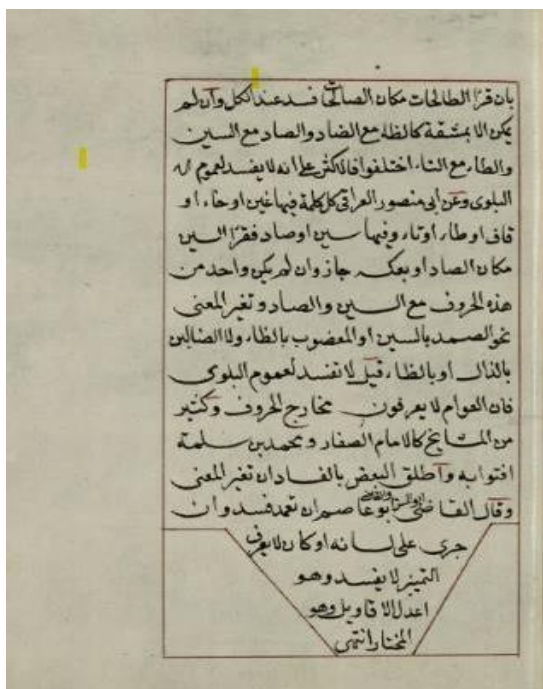 بان قرأ الطالحات مكان الصالحات فسد عند الكل وان لم
يمكن الا بمشقة كالظاء مع الضاد والصاد مع السين
والطاء مع التاء اختلفوا فالاكثر على انه لا يفسد لعموم
البلوى وعن ابى منصور العراقى كل كلمة فيها غين او حاء او
قاف او طاء او تاء وفيها سين او صاد فقرأ السين
مكان الصاد او بعكسه جاز وان لم يكن واحد من
هذه الحروف مع السين والصاد وتغير المعنى
نحو الصمد بالسين او المغضوب بالظاء ولا الضالين
بالذال او بالظاء قيل لا تفسد لعموم البلوى
فان العوام لا يعرفون مخارج الحروف وكثير
من المشايخ كالامام الصفار ومحمد بن سلمة
افتوا به واطلق البعض بالفساد ان تغير المعنى
وقال القاضى ابو عاصم ان تعمد فسد وان
جرى على لسانه او كان لا يعرف
التميز لا يفسد وهو
اعدل الاقاويل وهو
المختار انتهى